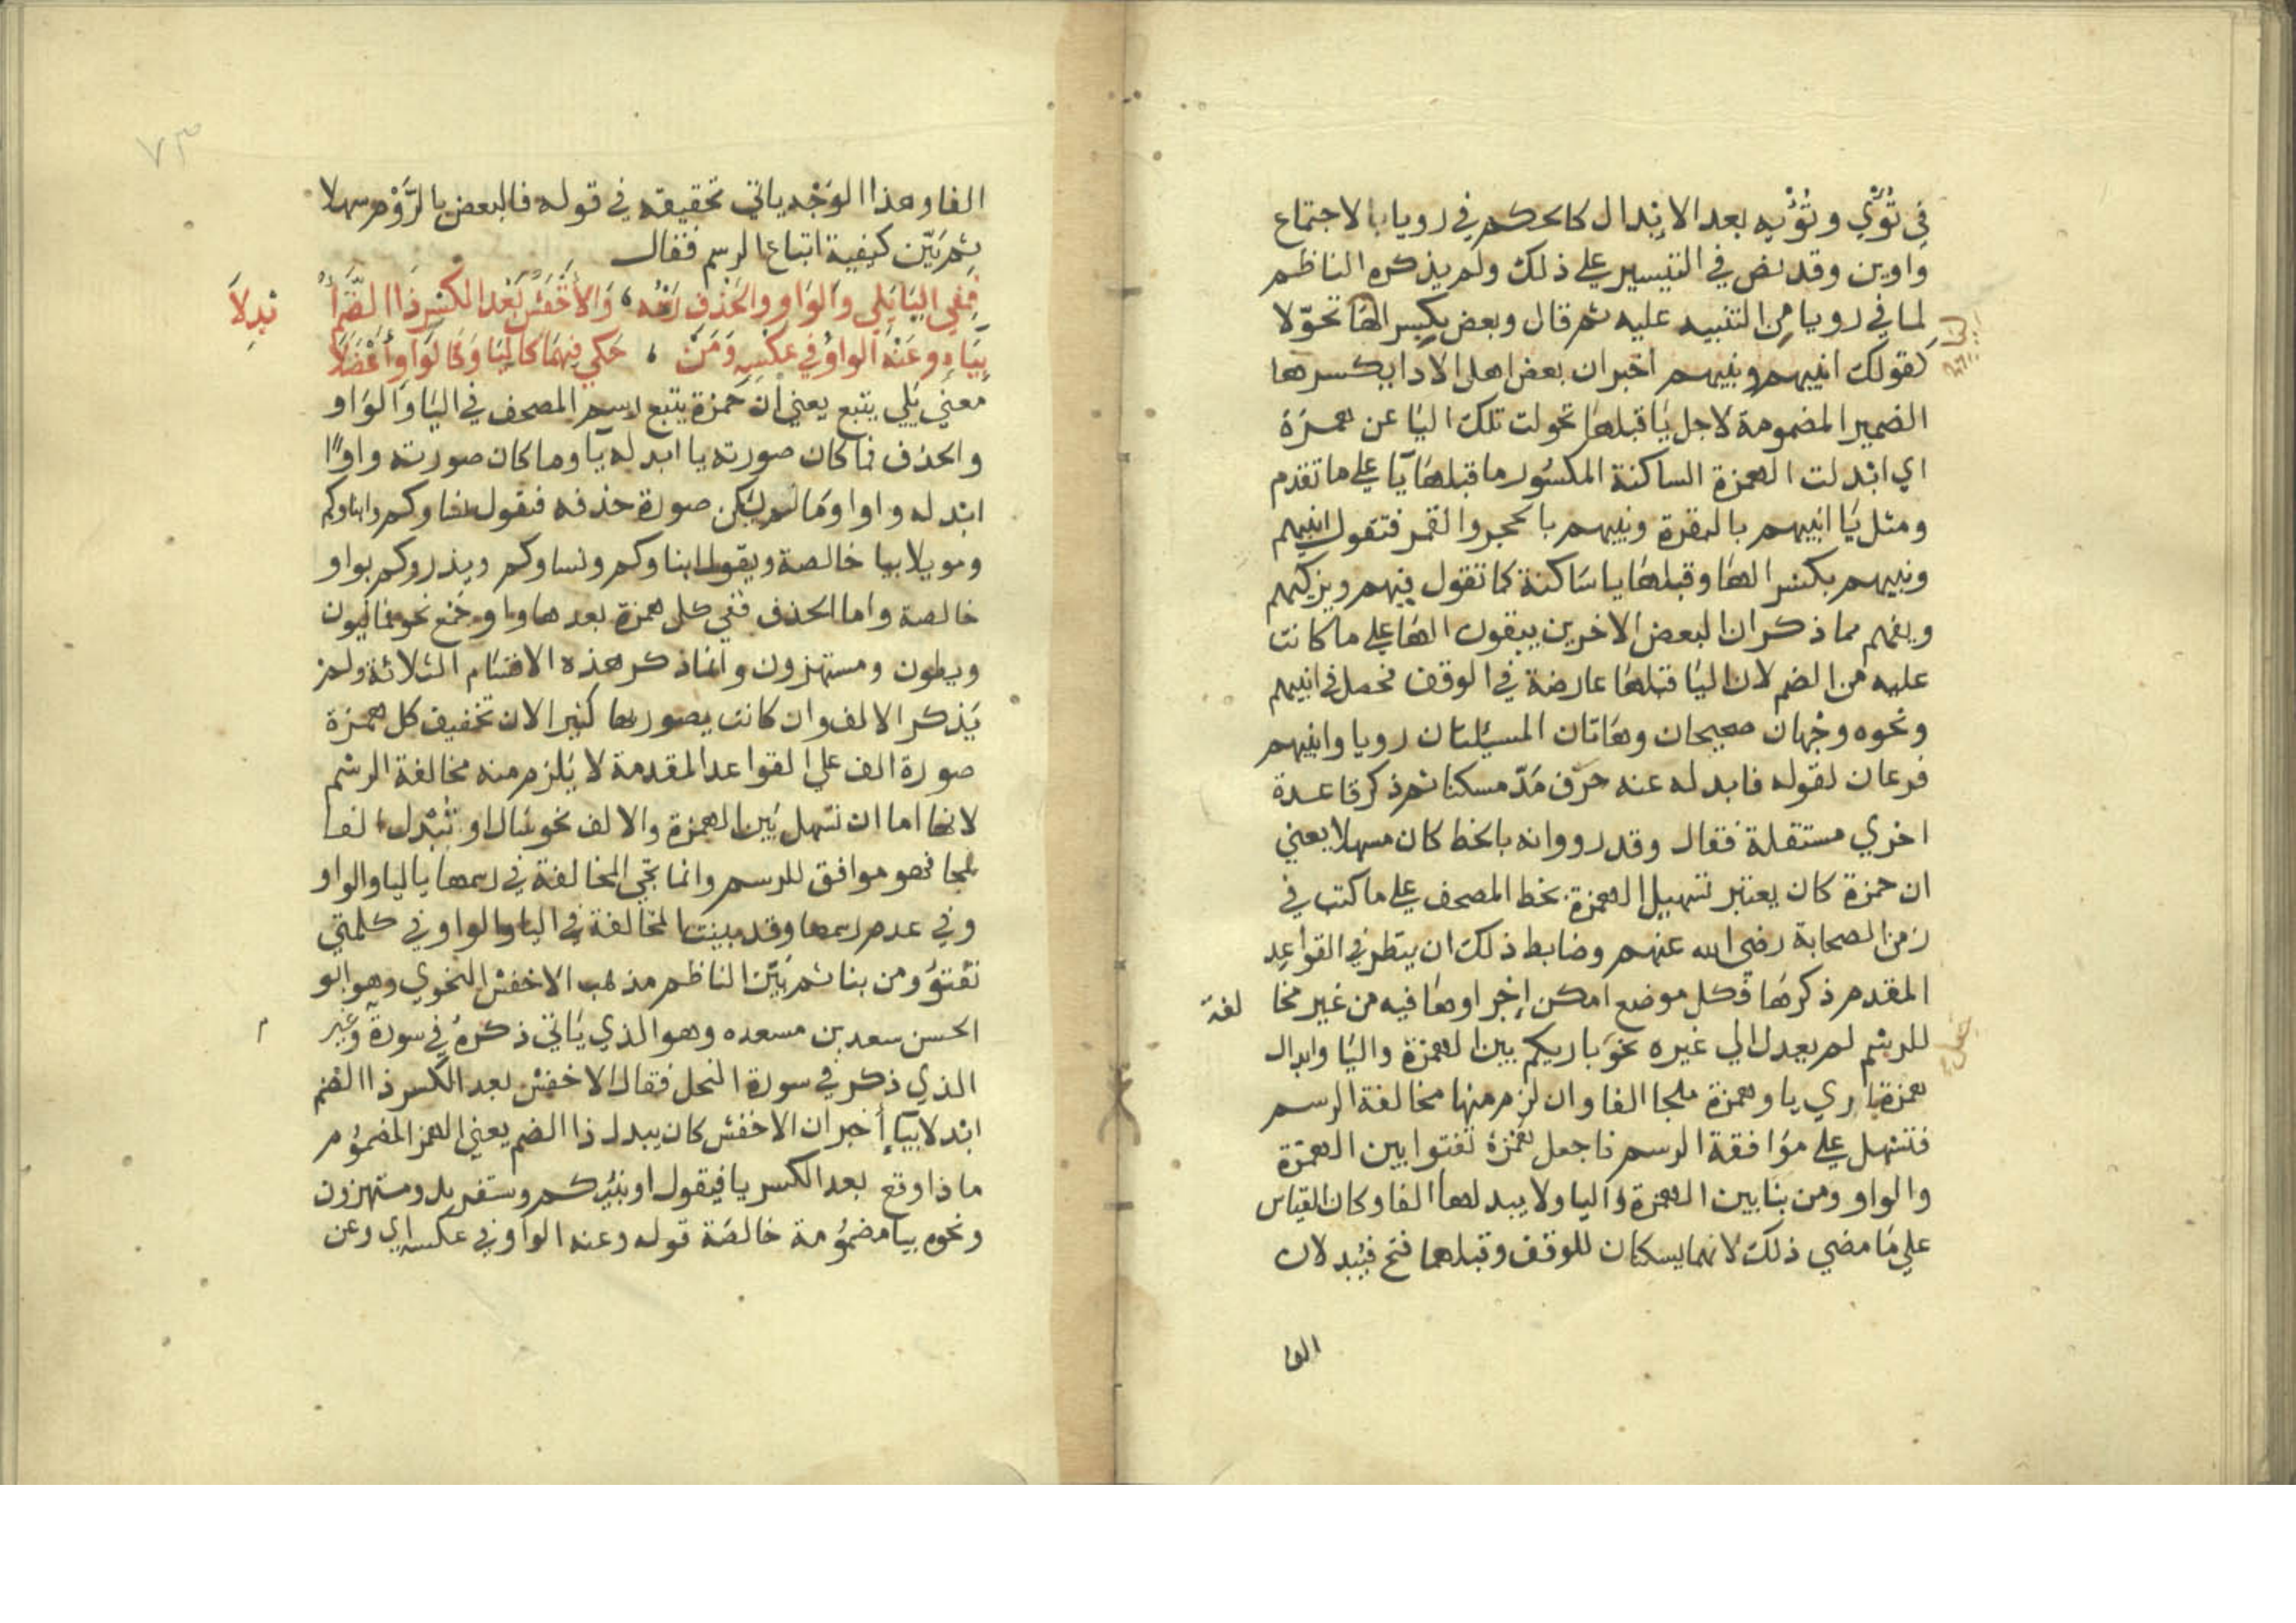 في تُؤْي وتُؤْيه بعد الابدال كالحكم في رويا بالاجتماع
واوين وقد نص في التيسير علي ذلك ولم يذكره الناظم
لما في رويا من التنبيه عليه ثم قال وبعض بكسر الها تحوّلا
كقولك انبيهم ونبيهم اخبر ان بعض اهل الادا بكسرها
الضمير المضمومة لاجل يا قبلها تحولت تلك اليا عن همزة
اي ابدلت الهمزة الساكنة المكسور ما قبلها يا علي ما تقدم
ومثل يا انبيهم بالبقرة ونبيهم بالحجر والقمر فتقول انبيهم
ونبيهم بكسر الها وقبلها يا ساكنة كما تقول فيهم ويزكيهم
ويفهم مما ذكر ان البعض الاخرين يبقون الها علي ما كانت
عليه من الضم لان اليا قبلها عارضة في الوقف فحصل في انبيهم
ونحوه وجهان صحيحان وهاتان المسيلتان رويا وانبيهم
فرعان لقوله فابدله عنه حرف مدّ مسكنا ثم ذكر قاعدة
اخري مستقلة فقال وقد رووا انه بالخط كان مسهلا يعني
ان حمزة كان يعتبر تسهيل الهمزة بخط المصحف علي ما كتب في
زمن الصحابة رضي الله عنهم وضابط ذلك ان ينظر في القواعد
المقدم ذكرها فكل موضع امكن إجراوها فيه من غير مخا لفة
للرسم لم يعدل الي غيره نحو باريكم بين الهمزة واليا وابدال
همزة باري يا وهمزة ملجا الفا وان لزم منها مخالفة الرسم
فتسهل علي موافقة الرسم فاجعل همزة تفتوا بين الهمزة
والواو ومن بنا بين الهمزة واليا ولا يبدلها الفا وكان القياس
علي ما مضي ذلك لانهما يسكنان للوقف وقبلهما فتح فيبدلان
الفا
٧٣
الفا وهذا الوَجْه ياتي تحقيقه في قوله فالبعض بالرَّوْم سهلا
ثم بَيّن كيفية اتباع الرسم فقال
فَفِي اليَا يَلِي وَالوَاو وَالحَذْف رَسْمُه ، وَالأَخْفَشُ بَعْدَ الكَسْرِ ذَا الضَّمِّ أُ بْدِلاَ
بِيَاءٍ وعَنْهُ الوَاوُ فِي عَكْسِهِ وَمَنْ ، حَكَى فِيهِمَا كَاليَا وَكَالوَاوِ أَعْضَلاَ
معني يَلي يتبع يعني ان حمزة يتبع رسم المصحف في اليا والواو
والحذف فما كان صورته يا ابدله يا وما كان صورته واوًا
ابدله واوا وما لم يكن صورة حذفه فتقول
ومويلا بيا خالصة ويقول ابناوكم ونساوكم ويذروكم بواو
خالصة واما الحذف ففي كل همزة بعدها واو جمع نحو فماليون
ويطون ومستهزون وانما ذكر هذه الاقسام الثلاثة ولم
يذكر الالف وان كانت يصور بها كثيرا لان تخفيف كل همزة
صورة الف علي القواعد المقدمة لا يلزم منه مخالفة الرسم
لانها اما ان تسهل بَين الهمزة والالف نحو سال او تُبْدل الفا
ملجا فهو موافق للرسم وانما تجي المخالفة في رسمها باليا والواو
وفي عدم رسمها وقد بينت المخالفة في اليا والواو في كلمتي
تفتؤ ومن بنا ثم بَيّن الناظم مذهب الاخفش النحوي وهو ابو
الحسن سعد بن مسعده وهو الذي ياتي ذكره في سورة وغير م
الذي ذكر في سورة النحل فقال الاخفش بعد الكسر ذا الضم
ابدلا بيَاءٍ أخبر ان الاخفش كان يبدل ذا الضم يعني الهمز المضموم
ما ذا وقع بعد الكسر يا فيقول اونبيكم وسنقريك ومستهزون
ونحوه بيا مضمومة خالصة قوله وعنه الواو في عكسه اي وعن